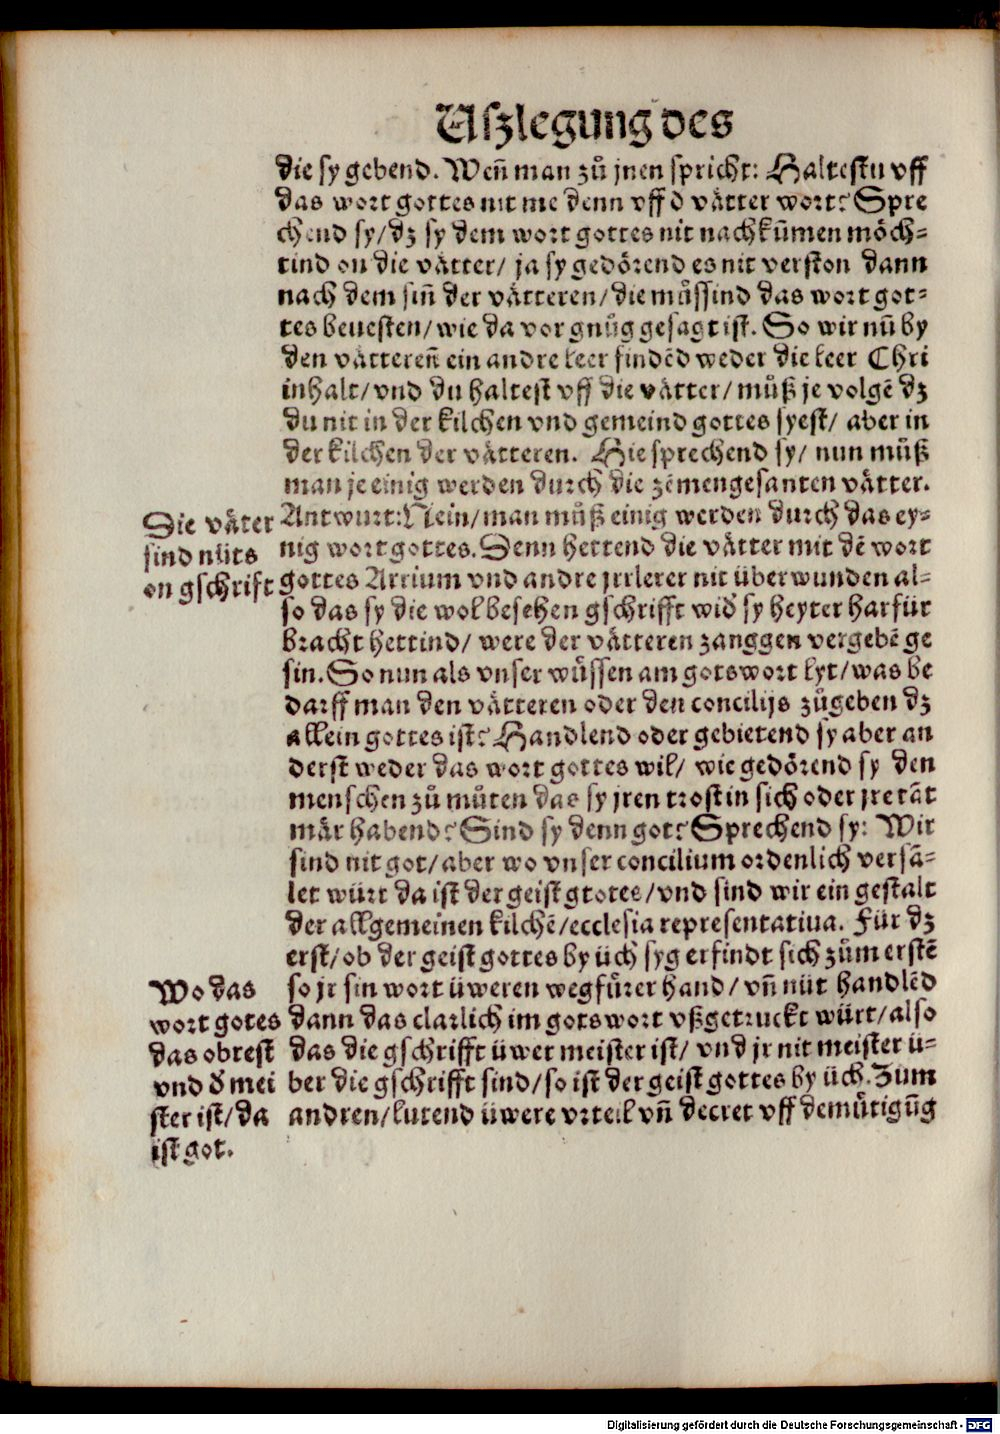 Uſzlegung des
die sy gebend. Weñ man zů jnen spricht: Haltestu vff
das wort gottes nit me denn vff d̕ vätter wort? Spre
chend sy/ dz sy dem wort gottes nit nachkūmen möch⸗
tind on die vätter/ ja sy gedörend es nit verston dann
nach dem siñ der vätteren/ die můssind das wort got⸗
tes beuesten/ wie da vor gnůg gesagt ist. So wir nū by
den vättereñ ein andre leer findēd weder die leer Chri
inhalt/ vnd du haltest vff die vätter/ můß je volgē dz
du nit in der kilchen vnd gemeind gottes syest/ aber in
der kilchen der vätteren. Hie sprechend sy/ nun můß
man je einig werden durch die zēmengesanten vätter.
Antwurt: Nein/ man můß einig werden durch das ey⸗
nig wort gottes. Denn hettend die vätter mit dē wort
gottes Arrium vnd andre jrrlerer nit überwunden al⸗
so das sy die wol besehen gschrifft wid̕ sy heyter harfür
bracht hettind/ were der vätteren zanggen vergebē ge
sin. So nun als vnser wůssen am gotswort lyt/ was be
darff man den vätteren oder den concilijs zůgeben dz
allein gottes ist? Handlend oder gebietend sy aber an
derst weder das wort gottes wil/ wie gedörend sy den
menschen zů můten das sy jren trost in sich oder jre tāt
mär habend? Sind sy denn got? Sprechend sy: Wir
sind nit got/ aber wo vnser concilium ordenlich versā⸗
let würt da ist der geist gtotes/ vnd sind wir ein gestalt
der allgemeinen kilchē/ ecclesia representatiua. Für dz
erst/ ob der geist gottes by üch syg erfindt sich zům erstē
so jr sin wort üweren wegfůrer hand/ vñ nüt handlēd
dann das clarlich im gotswort vßgetruckt würt/ also
das die gschrifft üwer meister ist/ vnd jr nit meister ü⸗
ber die gschrifft sind/ so ist der geist gottes by üch. Zum
andren/ lutend üwere vrteil vñ decret vff demůtigūg
Die väter
sind nüts
on gschrift
Wo das
wort gotes
das obrest
vnd d̕ mei
ster ist/ da
ist got.
Digitalisierung gefördert durch die Deutsche Forschungsgemeinschaft - DFG